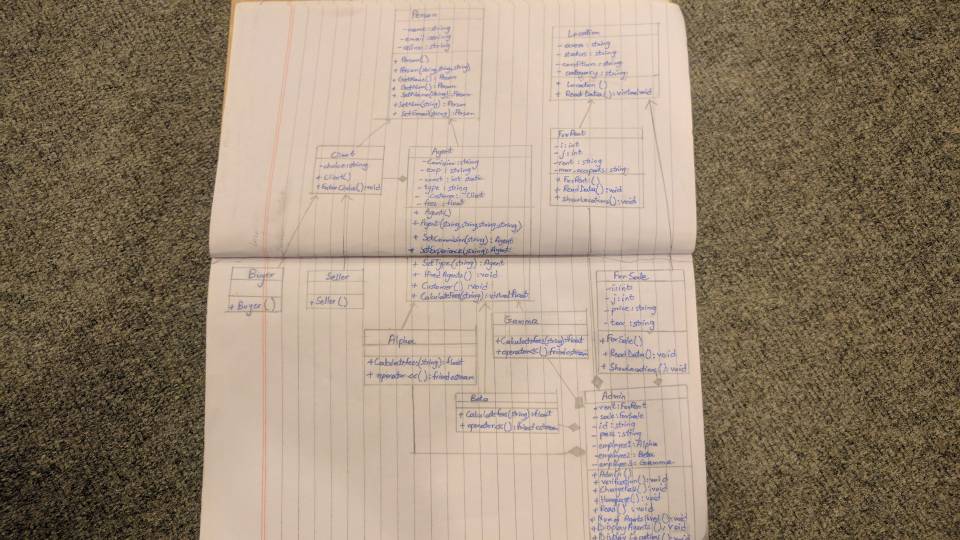 Person
- name : string
- email : string
: string
+ Person()
+ Person(string, string, string)
+ GetName() : Person
: Person
+ SetName(string) : Person
(string) : Person
+ SetEmail(string) : Person
Location
- area : string
- status : string
- condition : string
- category : string
+ Location ()
+ ReadData() : virtual void
Client
- choice : string
+ Client()
+ EnterChoice() : void
Agent
: string
- exp : string
- count : int static
- type : string
- Customer : Client
- fees : float
+ Agent()
+ Agent(string, string, string, string)
+ SetCommission(string) : Agent
+ SetExperience(string) : Agent
+ SetType(string) : Agent
+ HiredAgents() : void
+ Customer() : void
+ CalculateFees(string) : virtual float
ForRent
- i : int
- j : int
- rent : string
- max_occupants : string
+ ForRent()
+ ReadData() : void
+ ShowLocations() : void
Buyer
+ Buyer()
Seller
+ Seller()
For Sale
- i : int
- j : int
- price : string
- tax : string
+ ForSale()
+ ReadData() : void
+ ShowLocations() : void
Alpha
+ CalculateFees(string) : float
+ operator <<() : friend ostream
Gamma
+ CalculateFees(string) : float
+ operator <<() : friend ostream
Beta
+ CalculateFees(string) : float
+ operator <<() : friend ostream
Admin
- rent : ForRent
- sale : ForSale
- id : string
- pass : string
- employee1 : Alpha
- employee2 : Beta
- employee3 : Gamma
+ Admin()
+ verification() : void
+ ChangePass() : void
+ Homepage() : void
+ Read() : void
+ Num of Agents Hired() : void
+ Display Agents() : void
+ Display Location() : void